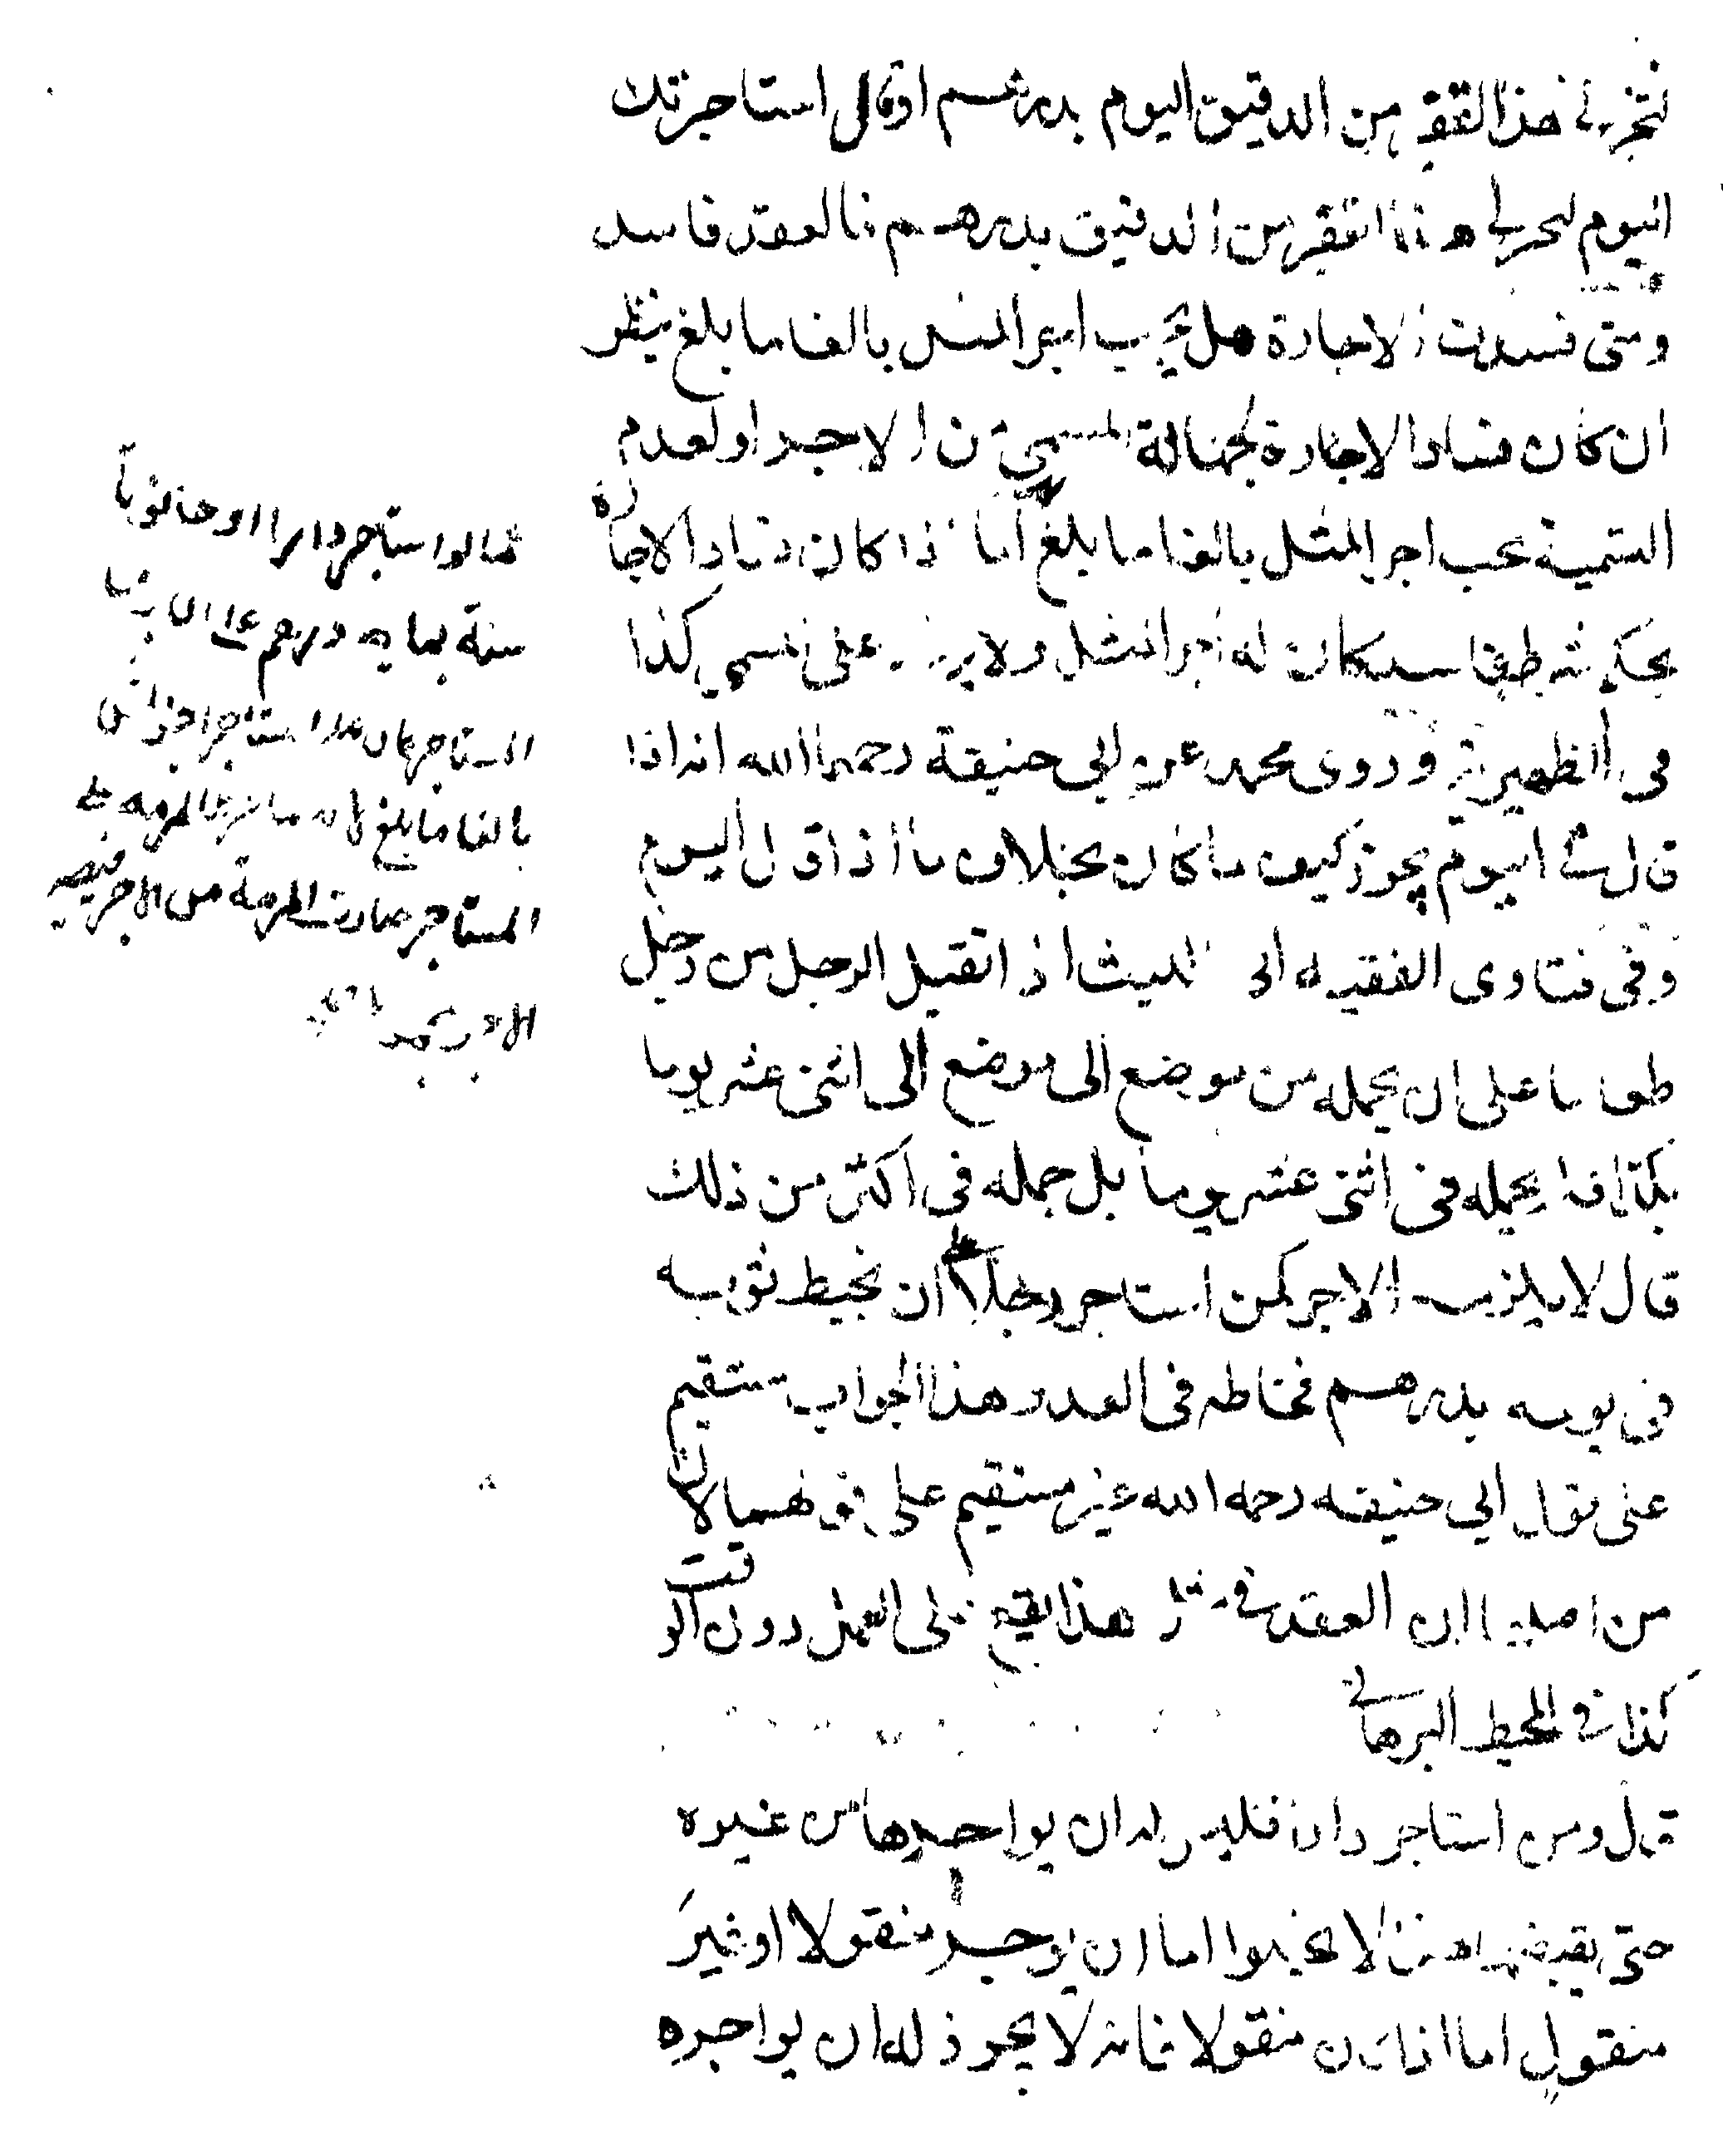 لتخبز لي هذا القفيز من الدقيق اليوم بدرهم او قال استاجرتك
اليوم لتخبز لي هذا القفيز من الدقيق بدرهم فالعقد فاسد
ومتى فسدت الاجارة هل يجب اجر المثل بالغا ما بلغ ينظر
ان كان فساد الاجارة لجهالة المسمى من الاجر او لعدم
التسمية يجب اجر المثل بالغا ما بلغ اما اذا كان فساد الاجارة
بحكم شرط فاسد كان له اجر المثل ولا يزاد على المسمى كذا
في الظهيرية وروى محمد عن ابي حنيفة رحمهما الله انه اذا
قال في اليوم يجوز كيف ما كان بخلاف ما اذا قال اليوم
وفي فتاوى الفقيه ابي الليث اذا تقبل الرجل من رجل
طعاما على ان يحمله من موضع الى موضع الى اثنى عشر يوما
بكذا فلم يحمله في اثنى عشر يوما بل حمله في اكثر من ذلك
قال لا يلزمه الاجر كمن استاجر رجلا ان يخيط ثوبه
في يومه بدرهم فخاطه في الغد وهذا الجواب مستقيم
على قول ابي حنيفه رحمه الله غير مستقيم على قولهما لان
من اصلهما ان العقد في مثل هذا يقع على العمل دون الوقت
كذا في المحيط البرهاني
قال ومن استاجر دارا فليس له ان يواجرها من غيره
حتى يقبضها هذا لا يخلوا اما ان يوجر منقولا او غير
منقول اما ان كان منقولا فانه لا يجوز له ان يواجره
كما لو استاجر دارا او حانوتا
سنة بماية درهم على ان يرمها
المستاجر كان على المستاجر اجر المثل
بالغا ما بلغ لانه لما شرط المرمة على
المستاجر صارت المرمة من الاجر فيصير
الاجر